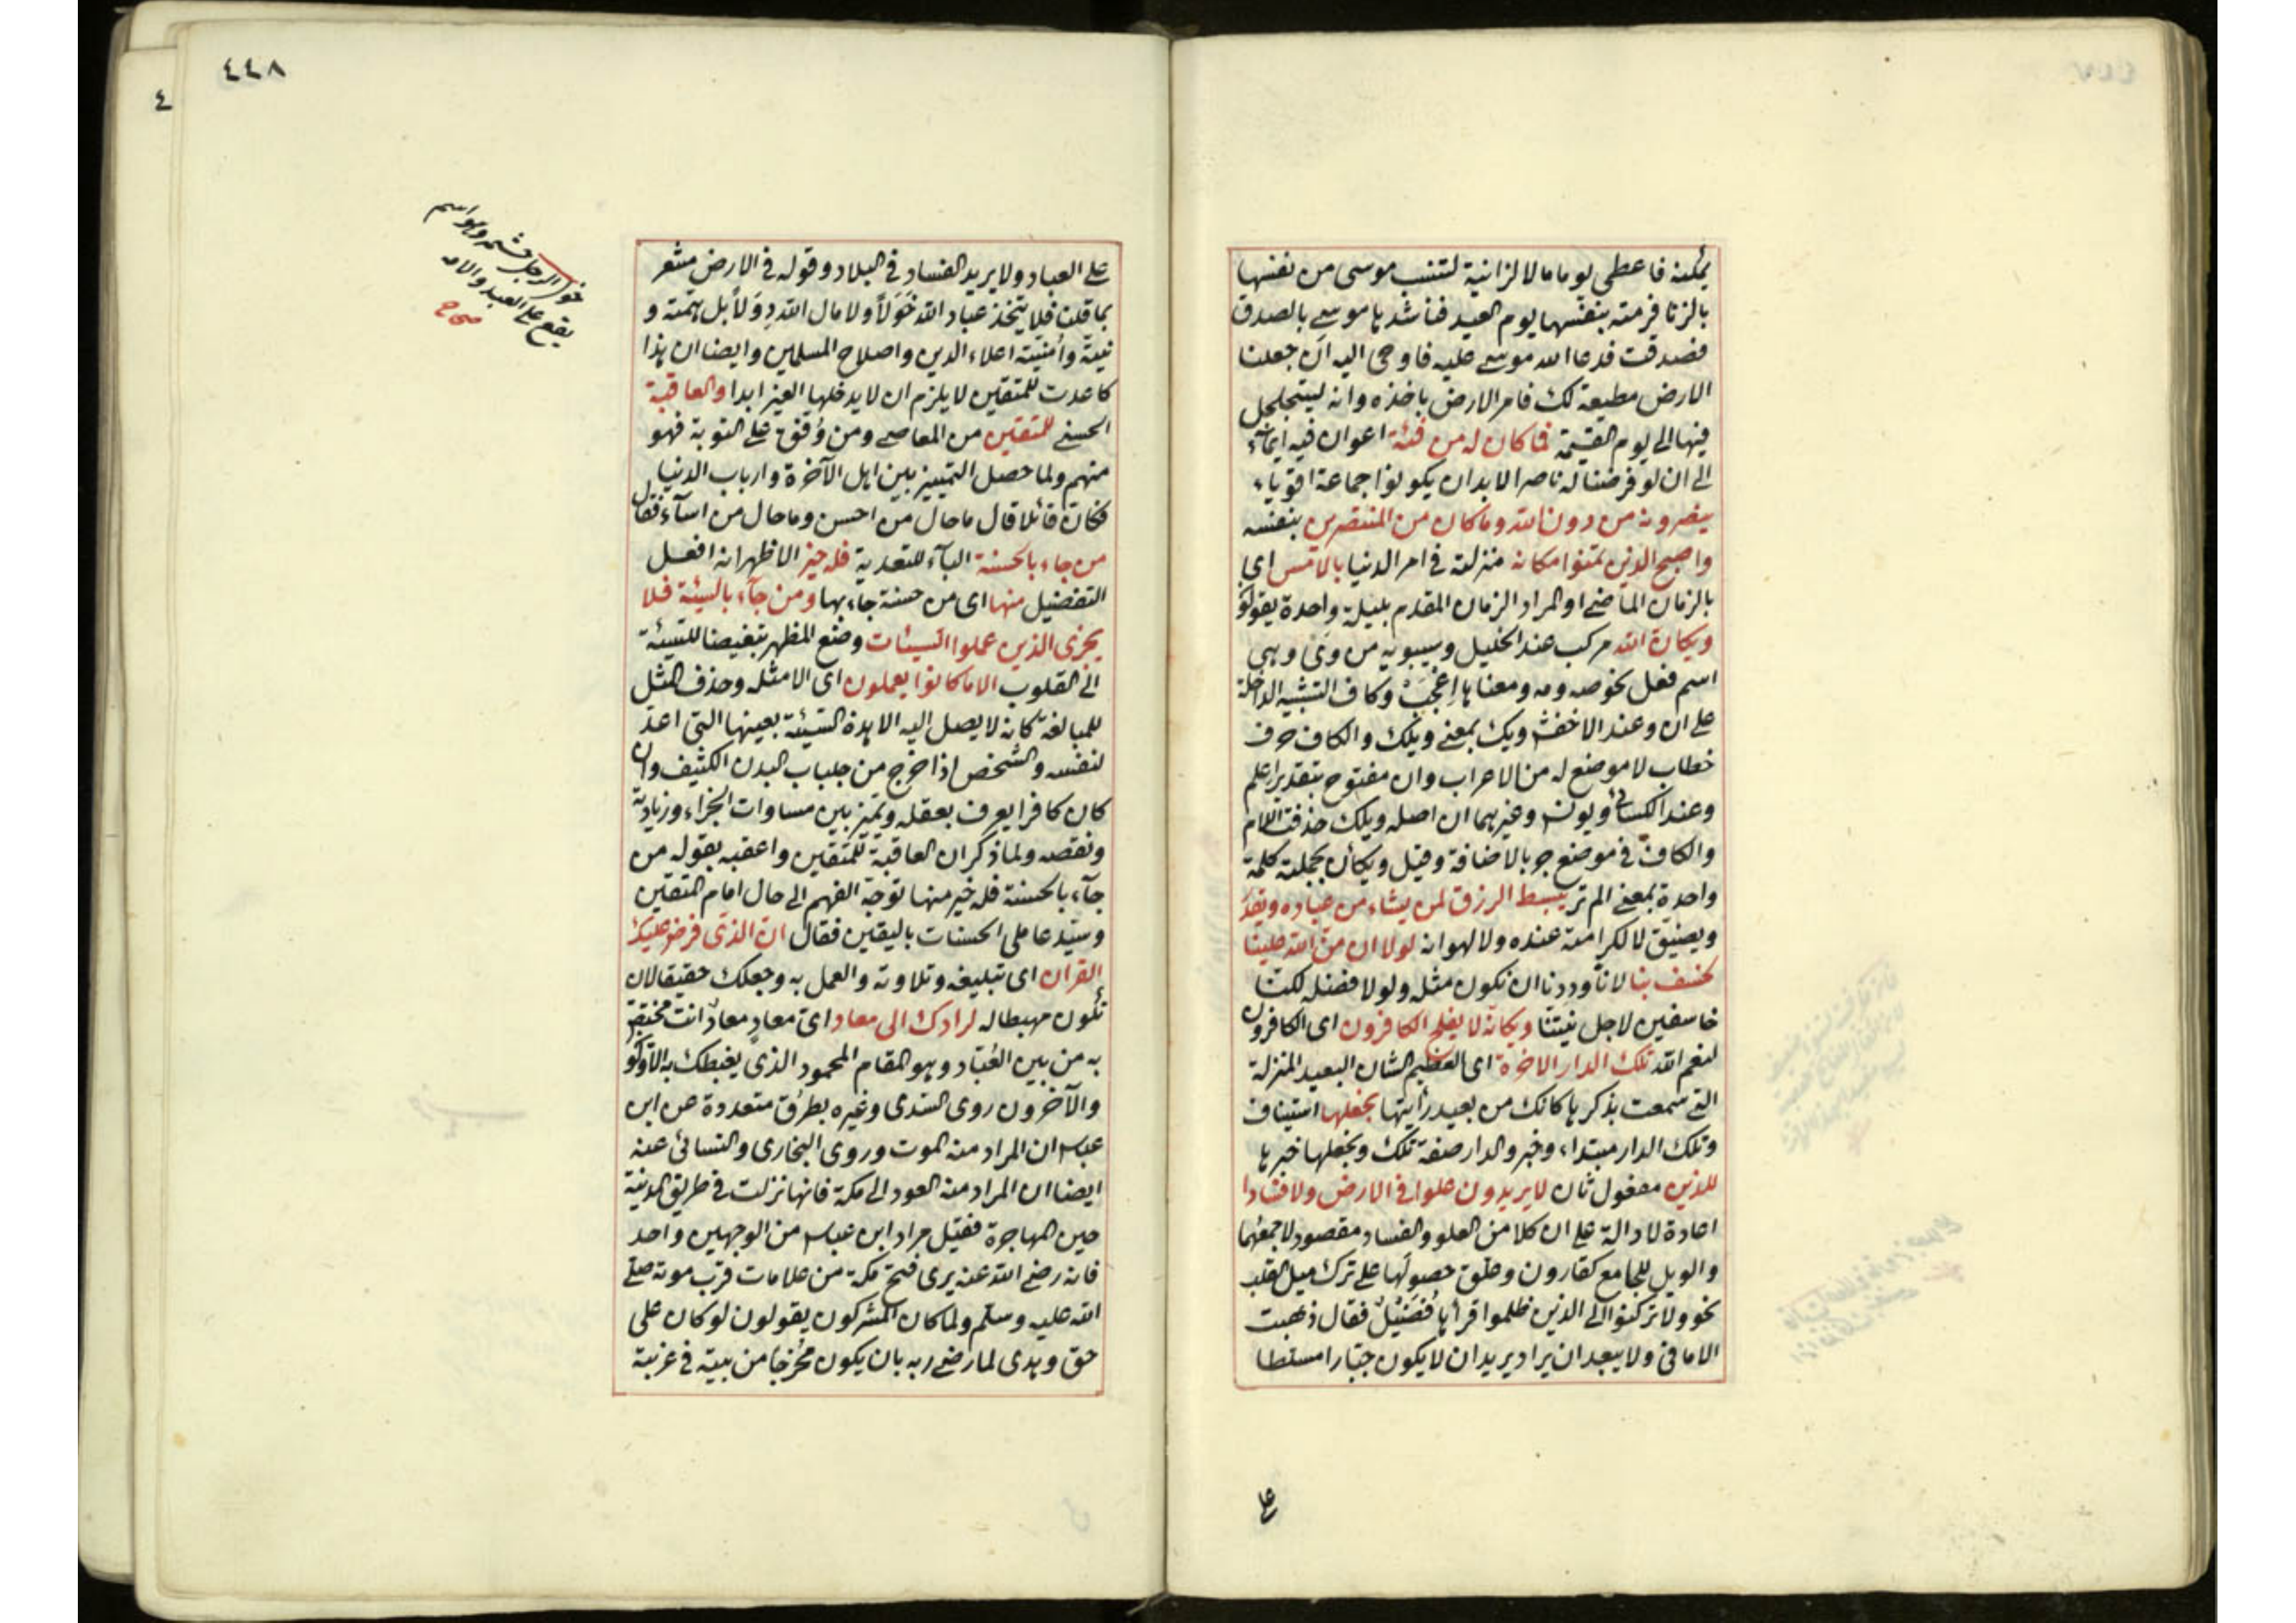 يمكنه فاعطى يوما مالا لزانية لتنسب موسى من نفسها
بالزنا فرمته بنفسها يوم العيد فناشدها موسى بالصدق
فصدقت فدعا الله موسى عليه فاوحى اليه ان جعلنا
الارض مطيعة لك فامر الارض باخذه وانه ليتجلجل
فيها الى يوم القيمة فما كان له من فئة اعوان فيه ايماء
الى ان لو فرضنا له ناصرا لابد ان يكونوا جماعة اقوياء
ينصرونه من دون الله وما كان من المنتصرين بنفسه
واصبح الذين تمنوا مكانه منزلته في امر الدنيا بالامس اى
بالزمان الماضى او المراد الزمان المقدم بليلة واحدة يقولو
ويكان الله مركب عند الخليل وسيبويه من وَىْ وهى
اسم فعل نحو صه ومه ومعناها اِعْجَبْ وكاف التشبيه الداخلة
على ان وعند الاخفش ويك بمعنى ويلك والكاف حرف
خطاب لا موضع له من الاعراب وان مفتوح بتقدير اعلم
وعند الكسائى ويونس وغيرهما ان اصله ويلك حذفت اللام
والكاف في موضع جر بالاضافة وقيل ويكأن بجملته كلمة
واحدة بمعنى الم تر يبسط الرزق لمن يشاء من عباده ويقدر
ويضيق لا لكرامة عنده ولا لهوانه لولا ان من الله علينا
لخسف بنا لانا وددنا ان نكون مثله ولولا فضله لكنا
خاسفين لاجل نيتنا ويكانه لا يفلح الكافرون اى الكافرون
لنعم الله تلك الدار الاخرة اى العظيم الشان البعيد المنزلة
التى سمعت بذكرها كانك من بعيد رأيتها نجعلها استيناف
وتلك الدار مبتداء وخبر والدار صفة تلك ونجعلها خبرها
للذين مفعول ثان لا يريدون علوا في الارض ولا فسادا
اعادة لا دالة على ان كلا من العلو والفساد مقصود لا جمعهما
والويل للجامع كقارون وعلق حصولها على ترك ميل القلب
نحو ولا تركنوا الى الذين ظلموا قرأها فُضَيْلٌ فقال ذهبت
الامانى ولا يبعد ان يراد يريد ان لا يكون جبارا متسلطا
على
٤٤٨
على العباد ولا يريد الفساد في البلاد وقوله في الارض مشعر
بما قلنا فلا يتخذ عباد الله خَوَلاً ولا مال الله دِوَلاً بل همته و
نيته وأمنيته اعلاء الدين واصلاح المسلمين وايضا ان هذا
كاعدت للمتقين لا يلزم ان لا يدخلها الغير ابدا والعاقبة
الحسنى للمتقين من المعاصى ومن وُفق على التوبة فهو
منهم ولما حصل التمييز بين اهل الآخرة وارباب الدنيا
فكان قائلا قال ما حال من احسن وما حال من اسآء فقال
من جاء بالحسنة البآء للتعدية فله خير الاظهر انه افعل
التفضيل منها اى من حسنة جاء بها ومن جآء بالسيئة فلا
يجزى الذين عملوا السيئات وضع المظهر تبغيضا للسيئة
الى القلوب الا ما كانوا يعملون اى الا مثله وحذف المثل
للمبالغة كانه لا يصل اليه الا هذه السيئة بعينها التى اعد
لنفسه والشخص اذا خرج من جلباب البدن الكثيف وان
كان كافرا يعرف بعقله ويتميز بين مساوات الجزاء وزيادته
ونقصه ولما ذكر ان العاقبة للمتقين واعقبه بقوله من
جآء بالحسنة فله خير منها توجّه الفهم الى حال امام المتقين
وسيد عاملى الحسنات باليقين فقال ان الذى فرض عليك
القران اى تبليغه وتلاوته والعمل به وجعلك حقيقا لان
تكون مهبطا له لرادك الى معاد اى معاد معاد انت مختص
به من بين العُبّاد وهو المقام المحمود الذى يغبطك به الاولو
والآخرون روى السدى وغيره بطرق متعددة عن ابن
عباس ان المراد منه الموت وروى البخارى والنسائى عنه
ايضا ان المراد منه العود الى مكة فانها نزلت في طريق المدينة
حين المهاجرة فقيل مراد ابن عباس من الوجهين واحد
فانه رضى الله عنه يرى فتح مكة من علامات قرب موته صلى
الله عليه وسلم ولما كان المشركون يقولون لو كان على
حق وهدى لما رضى ربه بان يكون مخرجا من بيته في غربة
خول الرجل حشمه وهو اسم
يقع على العبد والامة
صحاح
٤